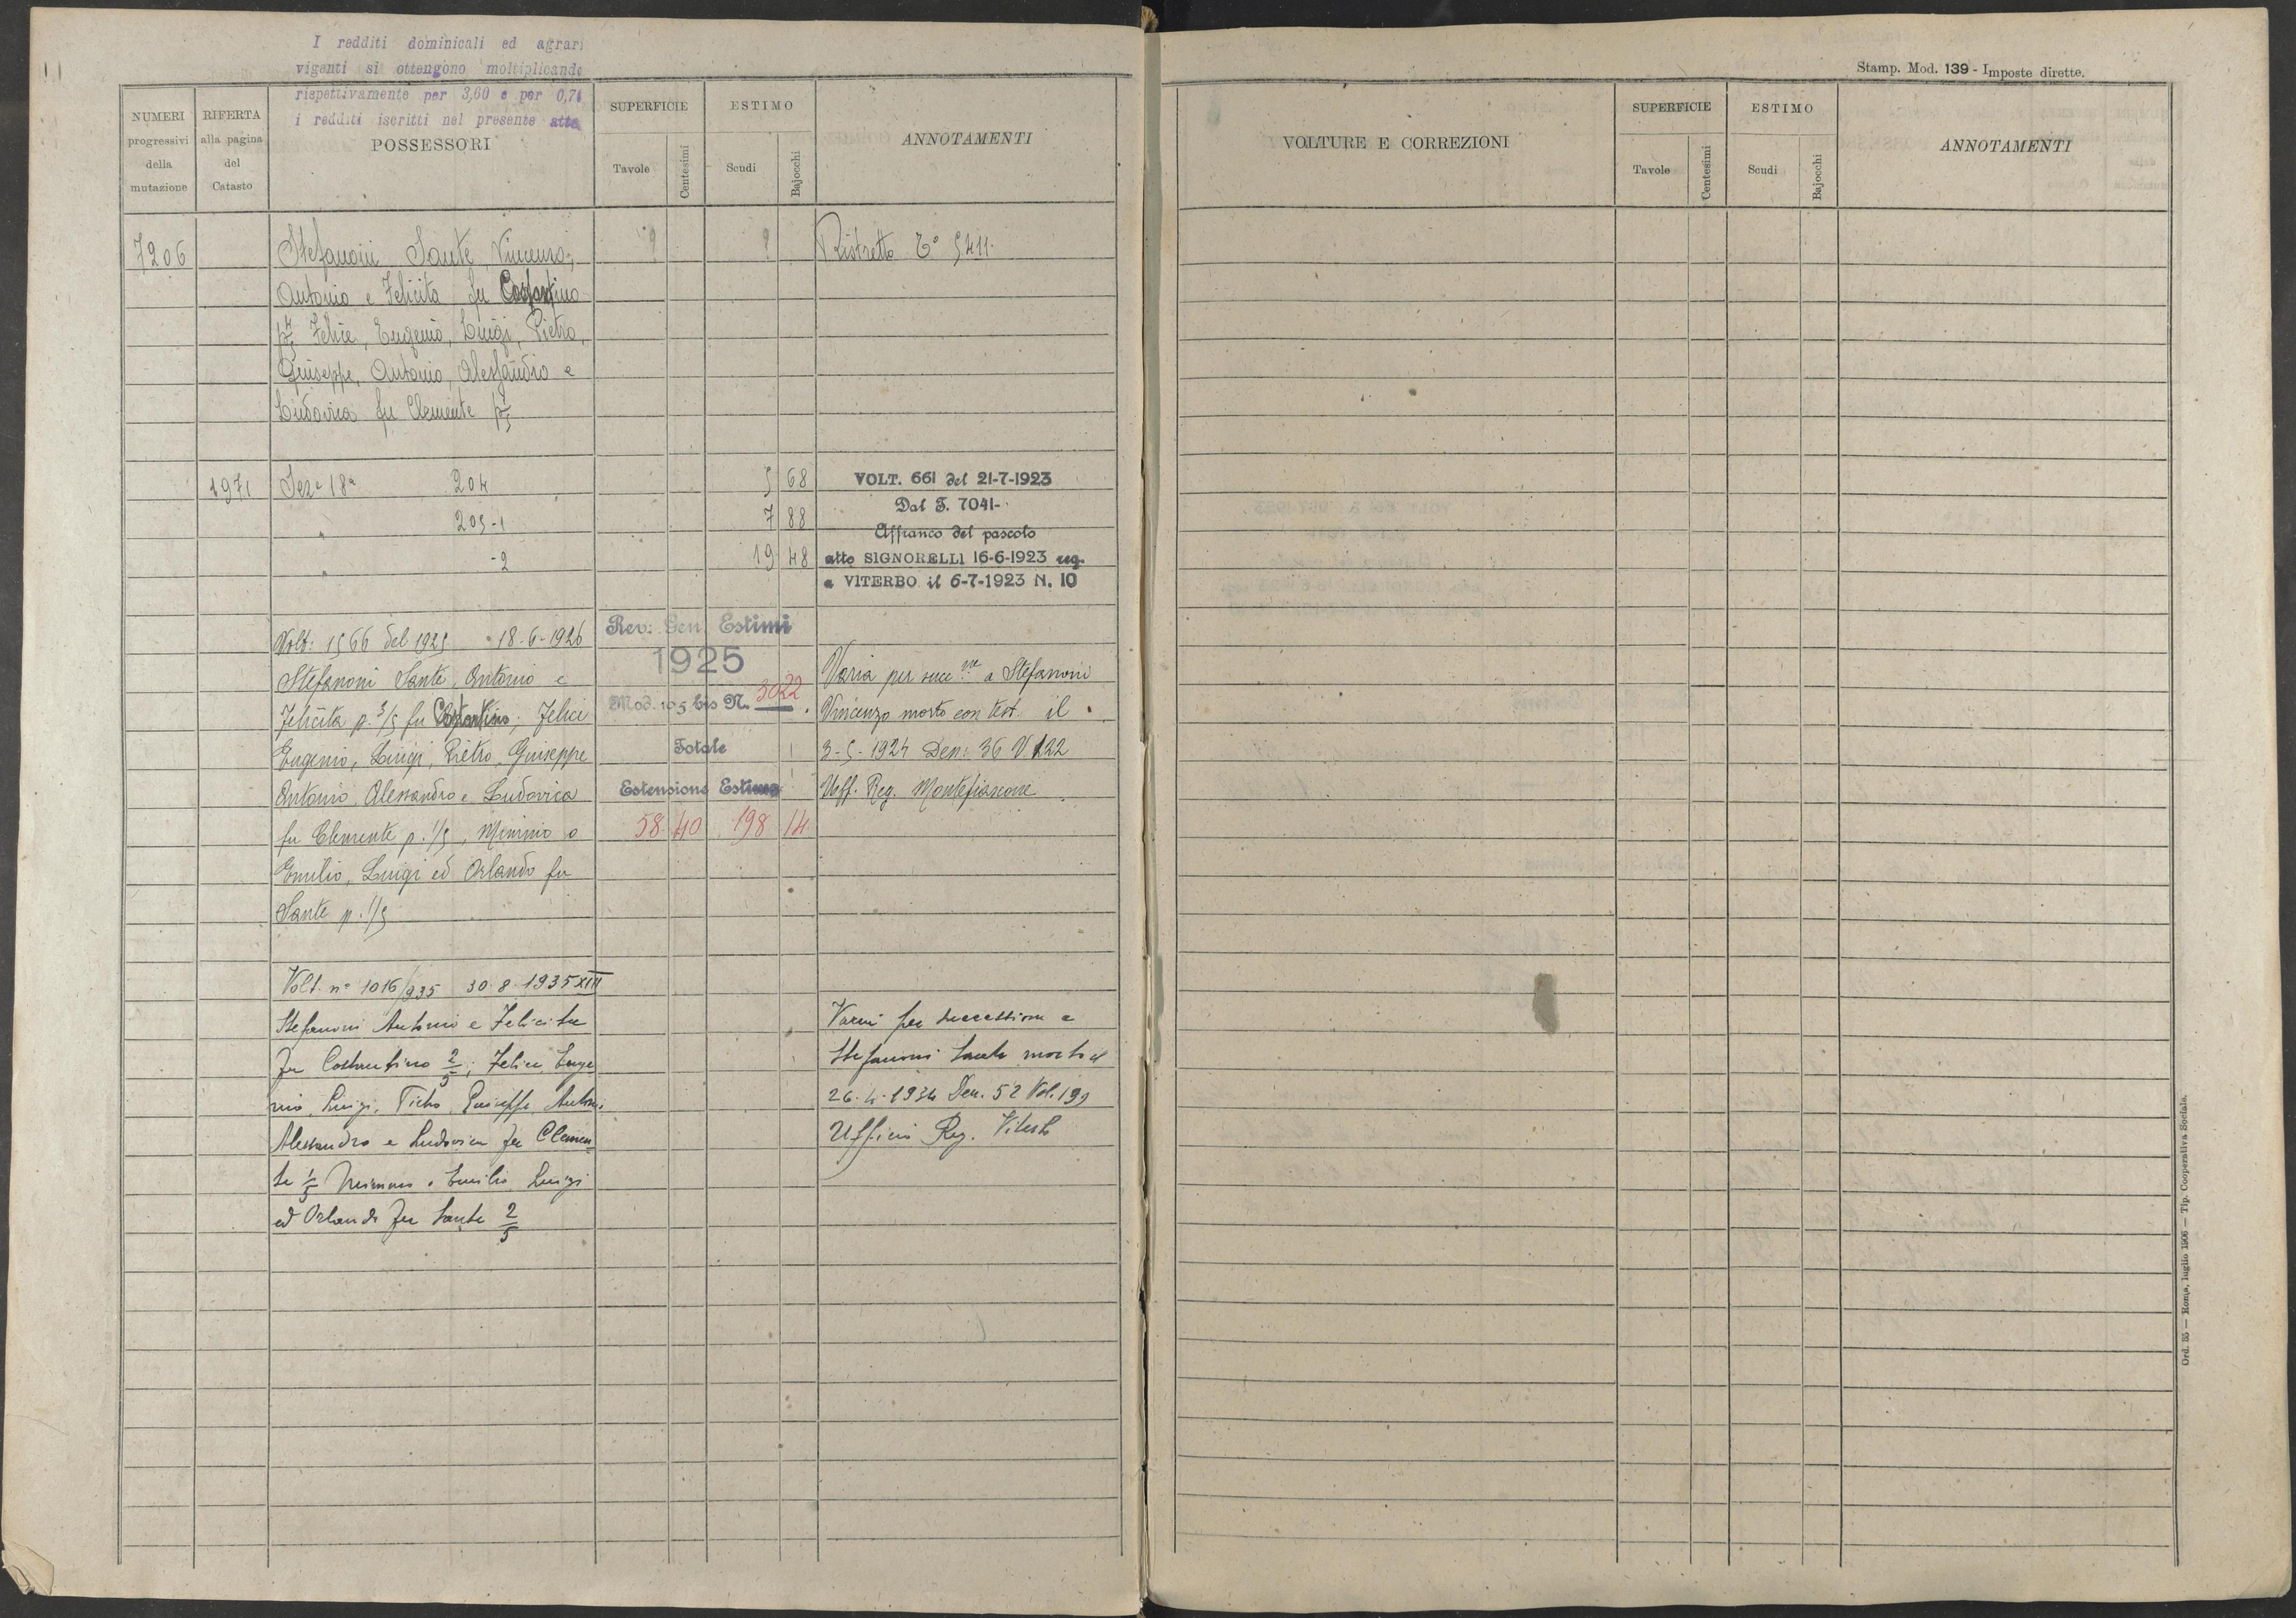 I redditi dominicali ed agrari
vigenti si ottengono moltiplicando
rispettivamente per 3,60 e per 0,71
i redditi iscritti nel presente atto
NUMERI
progressivi
della
mutazione
RIFERTA
alla pagina
del
Catasto
POSSESSORI
SUPERFICIE
Tavole
Centesimi
ESTIMO
Scudi
Bajocchi
ANNOTAMENTI
7206
Stefanoni Sante, Vincenzo,
Antonio e Felicita fu Costantino
p 4/5 Felice, Eugenio, Luigi, Pietro,
Giuseppe, Antonio, Alessandro e
Ludovica fu Clemente p 1/5
Ristretto To 5411
1971 Seze 18a 204 5 68
" 205-1 7 88
" -2 19 48
VOLT. 661 del 21-7-1923
Dal T. 7041-
Affranco del pascolo
atto SIGNORELLI 16-6-1923 reg.
a VITERBO il 6-7-1923 N. 10
Volt: 1566 del 1925 - 18-6-1926
Stefanoni Sante, Antonio e
Felicita p. 3/5 fu Costantino; Felici
Eugenio, Luigi, Pietro, Giuseppe
Antonio, Alessandro e Ludovica
fu Clemente p. 1/5, Mimmo o
Emilio, Luigi ed Orlando fu
Sante p. 1/5
Rev: Gen. Estimi
1925
Mod. 105 bis N. 3022.
Totale
Estensione Estimo
58 40 198 14
Varia per succne a Stefanoni
Vincenzo morto con test. il
3-5-1924 Den: 36 V. 122
Uff. Reg. Montefiascone
Volt. n° 1016/935 30.8.1935 XIII
Stefanoni Antonio e Felicita
fu Costantino 2/5; Felice, Euge
nio, Luigi, Pietro, Giuseppe Antoni
Alessandro e Ludovica fu Clemen
te 1/5 Mimmo o Emilio Luigi
ed Orlando fu Sante 2/5
Varia per successione a
Stefanoni Sante morto il
26.4.1934 Den. 52 Vol. 199
Ufficio Reg. Viterbo
Stamp. Mod. 139 - Imposte dirette.
VOLTURE E CORREZIONI
SUPERFICIE
Tavole
Centesimi
ESTIMO
Scudi
Bajocchi
ANNOTAMENTI
Ord. 85 — Roma, luglio 1906 — Tip. Cooperativa Sociale.